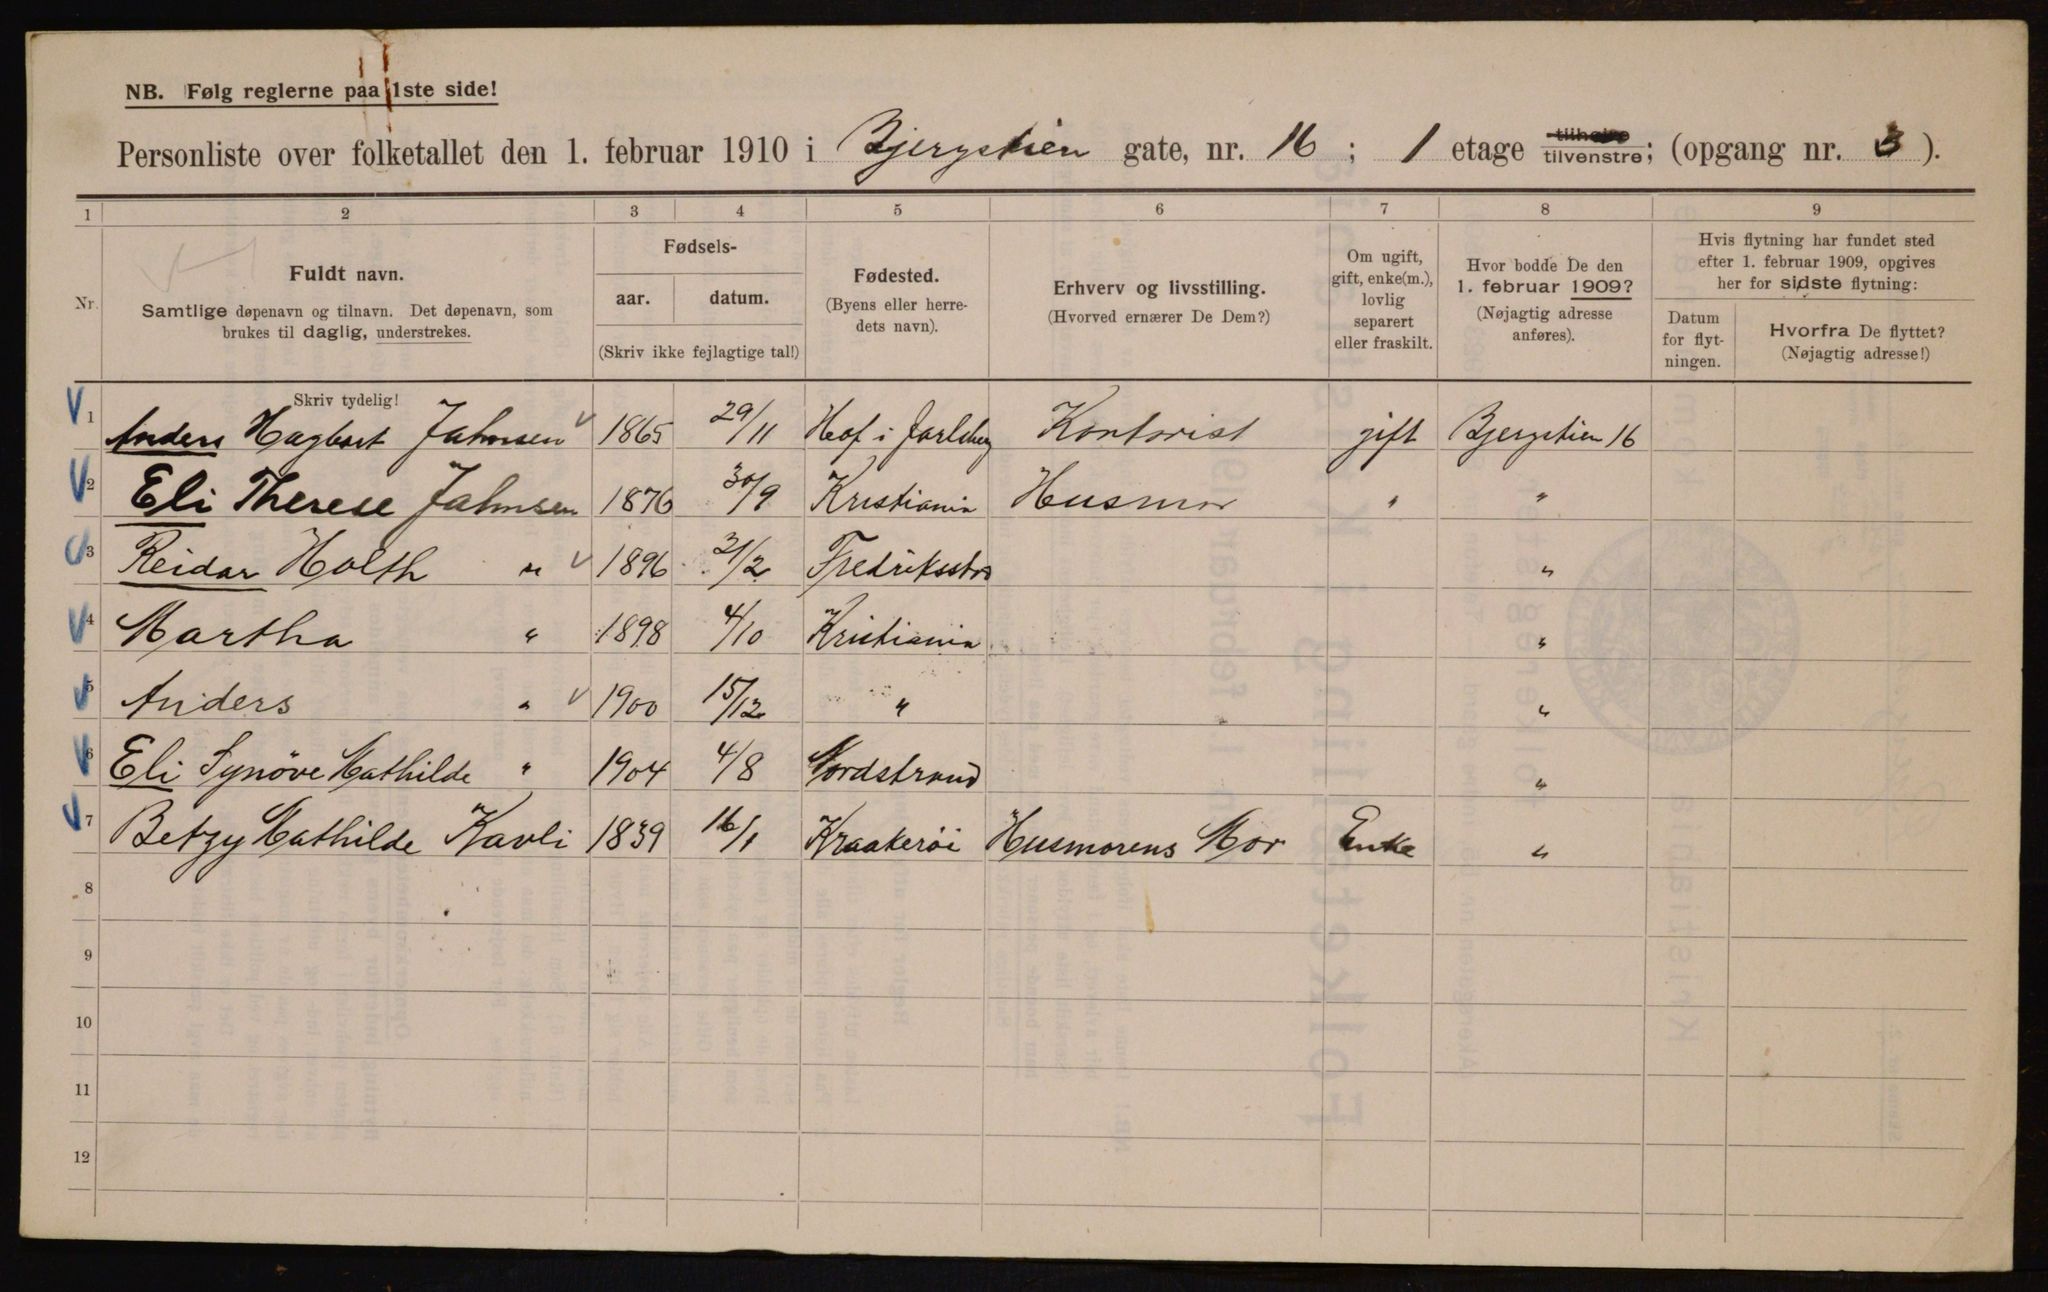 NB. Følg reglerne paa 1ste side!
Personliste over folketallet den 1. februar 1910 i Bjergstien gate, nr. 16 ; 1 etage tilhøire tilvenstre; (opgang nr. 3 ).
1 2 3 4 5 6 7 8 9
Nr.
Fuldt navn.
Samtlige døpenavn og tilnavn. Det døpenavn, som
brukes til daglig, understrekes.
Fødsels-
aar. datum.
(Skriv ikke fejlagtige tal!)
Fødested.
(Byens eller herre-
dets navn).
Erhverv og livsstilling.
(Hvorved ernærer De Dem?)
Om ugift,
gift, enke(m.),
lovlig
separert
eller fraskilt.
Hvor bodde De den
1. februar 1909?
(Nøjagtig adresse
anføres).
Hvis flytning har fundet sted
efter 1. februar 1909, opgives
her for sidste flytning:
Datum
for flyt-
ningen.
Hvorfra De flyttet?
(Nøjagtig adresse!)
Skriv tydelig!
1 Anders Hagbart Jahnsen 1865 29/11 Hof i Jarlsberg Kontorist gift Bjergstien 16
2 Eli Therese Jahnsen 1876 30/9 Kristiania Husmor " "
3 Reidar Holth " 1896 21/2 Fredriksstad "
4 Martha " 1898 4/10 Kristiania "
5 Anders " 1900 15/12 " "
6 Eli Synöve Mathilde " 1904 4/8 Nordstrand "
7 Betzy Mathilde Kavli 1839 16/1 Kraakeröi Husmorens Mor Enke "
8
9
10
11
12